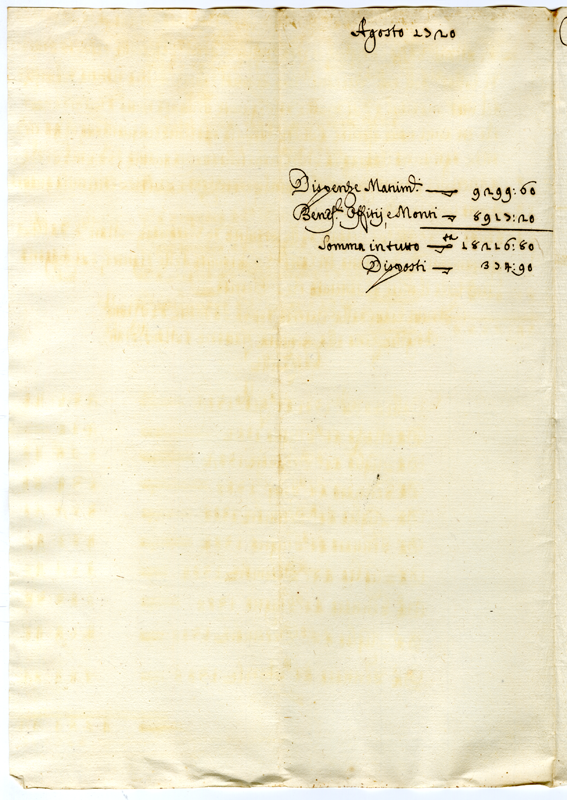 Agosto 1720
Dispenze Matrim.li 9299:60
Benef.li Offitij, e Monti 8917:20
Somma in tutto 18216:80
Disposti